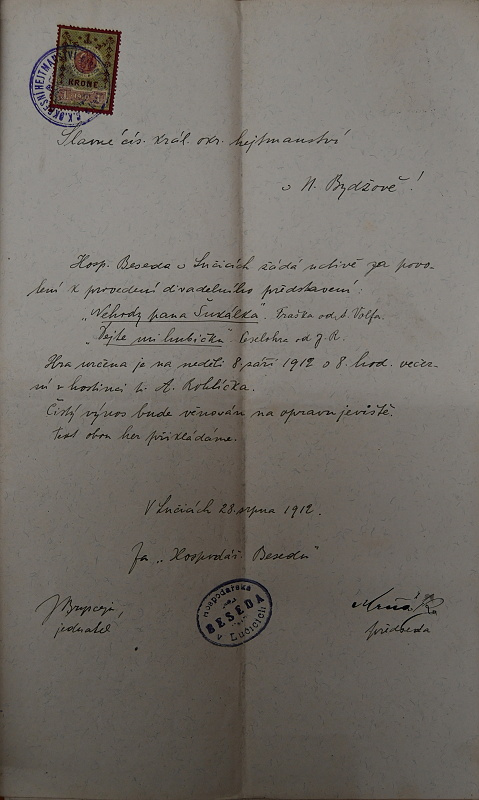 1
KRONE
C.K. OKRESNÍ HEJTMAN
Slavné cís. král. okr. hejtmanství
v N. Bydžově!
Hosp. Beseda v Lučicích žádá uctivě za povo-
lení k provedení divadelního představení:
„Nehody pana Šukálka“. Fraška od A. Volfa.
„Dejte mi hubičku“. Veselohra od J. R.
Hra určena je na neděli 8. září 1912 o 8. hod. večer-
ní v hostinci u A. Rohlíčka.
Čistý výnos bude věnován na opravu jeviště,
text obou her přikládáme.
V Lučicích 28. srpna 1912.
Za „Hospodář. Besedu“
jednatel
Hospodářská
BESEDA
v Lučicích
předseda